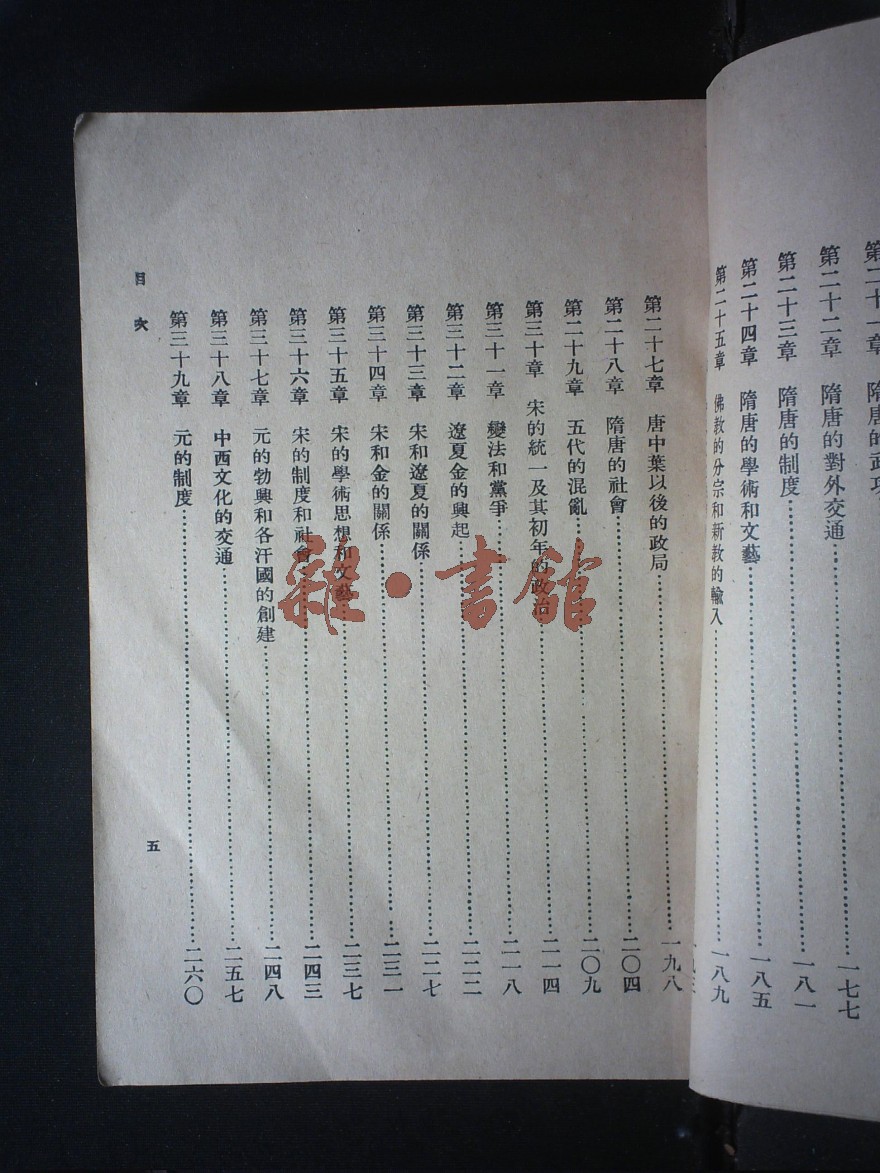 第二十一章 隋唐的武功
第二十二章 隋唐的對外交通……一七七
第二十三章 隋唐的制度……一八一
第二十四章 隋唐的學術和文藝……一八五
第二十五章 佛教的分宗和新教的輸入……一八九
第二十七章 唐中葉以後的政局……一九八
第二十八章 隋唐的社會……二〇四
第二十九章 五代的混亂……二〇九
第三十章 宋的統一及其初年的政治……二一四
第三十一章 變法和黨爭……二一八
第三十二章 遼夏金的興起……二二二
第三十三章 宋和遼夏的關係……二二七
第三十四章 宋和金的關係……二三一
第三十五章 宋的學術思想和文藝……二三七
第三十六章 宋的制度和社會……二四三
第三十七章 元的勃興和各汗國的創建……二四八
第三十八章 中西文化的交通……二五七
第三十九章 元的制度……二六〇
目次
五
雜·書館